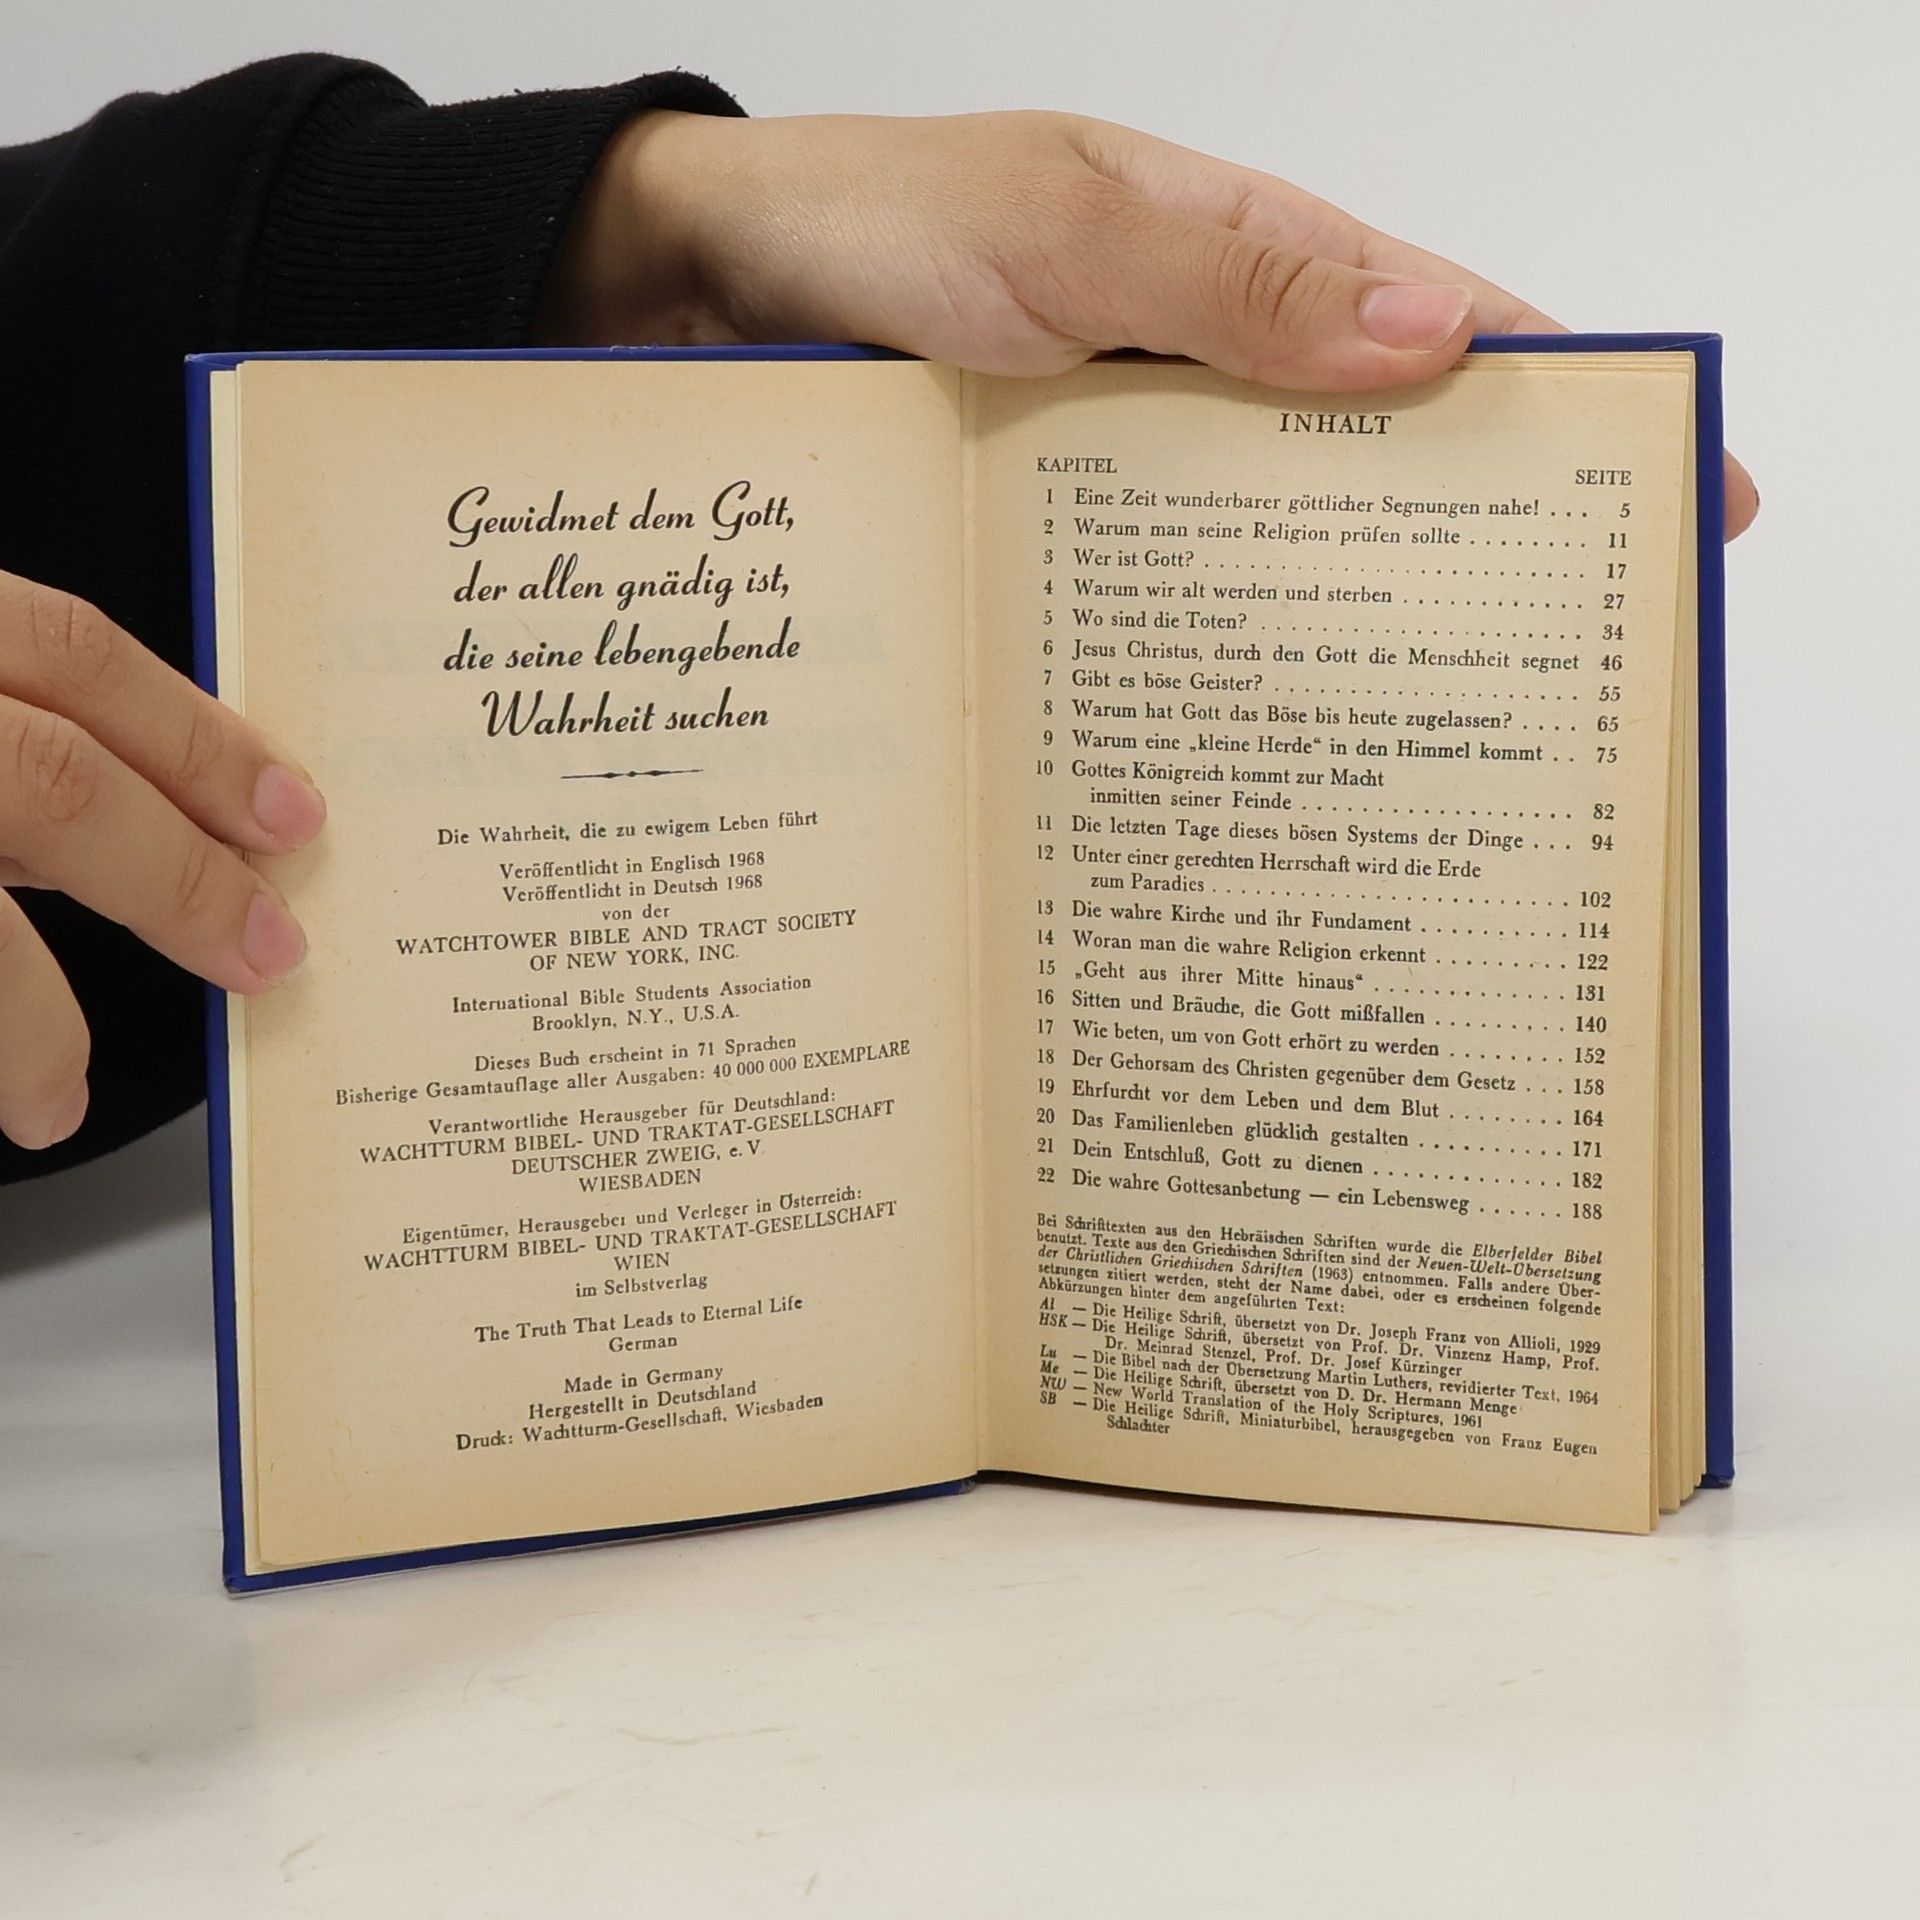 Gewidmet dem Gott,
der allen gnädig ist,
die seine lebengebende
Wahrheit suchen
Die Wahrheit, die zu ewigem Leben führt
Veröffentlicht in Englisch 1968
Veröffentlicht in Deutsch 1968
von der
WATCHTOWER BIBLE AND TRACT SOCIETY
OF NEW YORK, INC.
International Bible Students Association
Brooklyn, N.Y., U.S.A.
Dieses Buch erscheint in 71 Sprachen
Bisherige Gesamtauflage aller Ausgaben: 40 000 000 EXEMPLARE
Verantwortliche Herausgeber für Deutschland:
WACHTTURM BIBEL- UND TRAKTAT-GESELLSCHAFT
DEUTSCHER ZWEIG, e. V.
WIESBADEN
Eigentümer, Herausgeber und Verleger in Österreich:
WACHTTURM BIBEL- UND TRAKTAT-GESELLSCHAFT
WIEN
im Selbstverlag
The Truth That Leads to Eternal Life
German
Made in Germany
Hergestellt in Deutschland
Druck: Wachtturm-Gesellschaft, Wiesbaden
INHALT
KAPITEL SEITE
1 Eine Zeit wunderbarer göttlicher Segnungen nahe! . . . 5
2 Warum man seine Religion prüfen sollte . . . . . . . . 11
3 Wer ist Gott? . . . . . . . . . . . . . . . . . . . . . . . . . 17
4 Warum wir alt werden und sterben . . . . . . . . . . . . 27
5 Wo sind die Toten? . . . . . . . . . . . . . . . . . . . . . 34
6 Jesus Christus, durch den Gott die Menschheit segnet 46
7 Gibt es böse Geister? . . . . . . . . . . . . . . . . . . . . 55
8 Warum hat Gott das Böse bis heute zugelassen? . . . . 65
9 Warum eine „kleine Herde“ in den Himmel kommt . . 75
10 Gottes Königreich kommt zur Macht
inmitten seiner Feinde . . . . . . . . . . . . . . . . . . 82
11 Die letzten Tage dieses bösen Systems der Dinge . . . 94
12 Unter einer gerechten Herrschaft wird die Erde
zum Paradies . . . . . . . . . . . . . . . . . . . . . . . 102
13 Die wahre Kirche und ihr Fundament . . . . . . . . . . 114
14 Woran man die wahre Religion erkennt . . . . . . . . . 122
15 „Geht aus ihrer Mitte hinaus“ . . . . . . . . . . . . . 131
16 Sitten und Bräuche, die Gott mißfallen . . . . . . . . . 140
17 Wie beten, um von Gott erhört zu werden . . . . . . . . 152
18 Der Gehorsam des Christen gegenüber dem Gesetz . . . 158
19 Ehrfurcht vor dem Leben und dem Blut . . . . . . . . 164
20 Das Familienleben glücklich gestalten . . . . . . . . . . 171
21 Dein Entschluß, Gott zu dienen . . . . . . . . . . . . . 182
22 Die wahre Gottesanbetung — ein Lebensweg . . . . . . 188
Bei Schrifttexten aus den Hebräischen Schriften wurde die Elberfelder Bibel
benutzt. Texte aus den Griechischen Schriften sind der Neuen-Welt-Übersetzung
der Christlichen Griechischen Schriften (1963) entnommen. Falls andere Über-
setzungen zitiert werden, steht der Name dabei, oder es erscheinen folgende
Abkürzungen hinter dem angeführten Text:
Al — Die Heilige Schrift, übersetzt von Dr. Joseph Franz von Allioli, 1929
HSK — Die Heilige Schrift, übersetzt von Prof. Dr. Vinzenz Hamp, Prof.
Dr. Meinrad Stenzel, Prof. Dr. Josef Kürzinger
Lu — Die Bibel nach der Übersetzung Martin Luthers, revidierter Text, 1964
Me — Die Heilige Schrift, übersetzt von D. Dr. Hermann Menge
NW — New World Translation of the Holy Scriptures, 1961
SB — Die Heilige Schrift, Miniaturbibel, herausgegeben von Franz Eugen
Schlachter